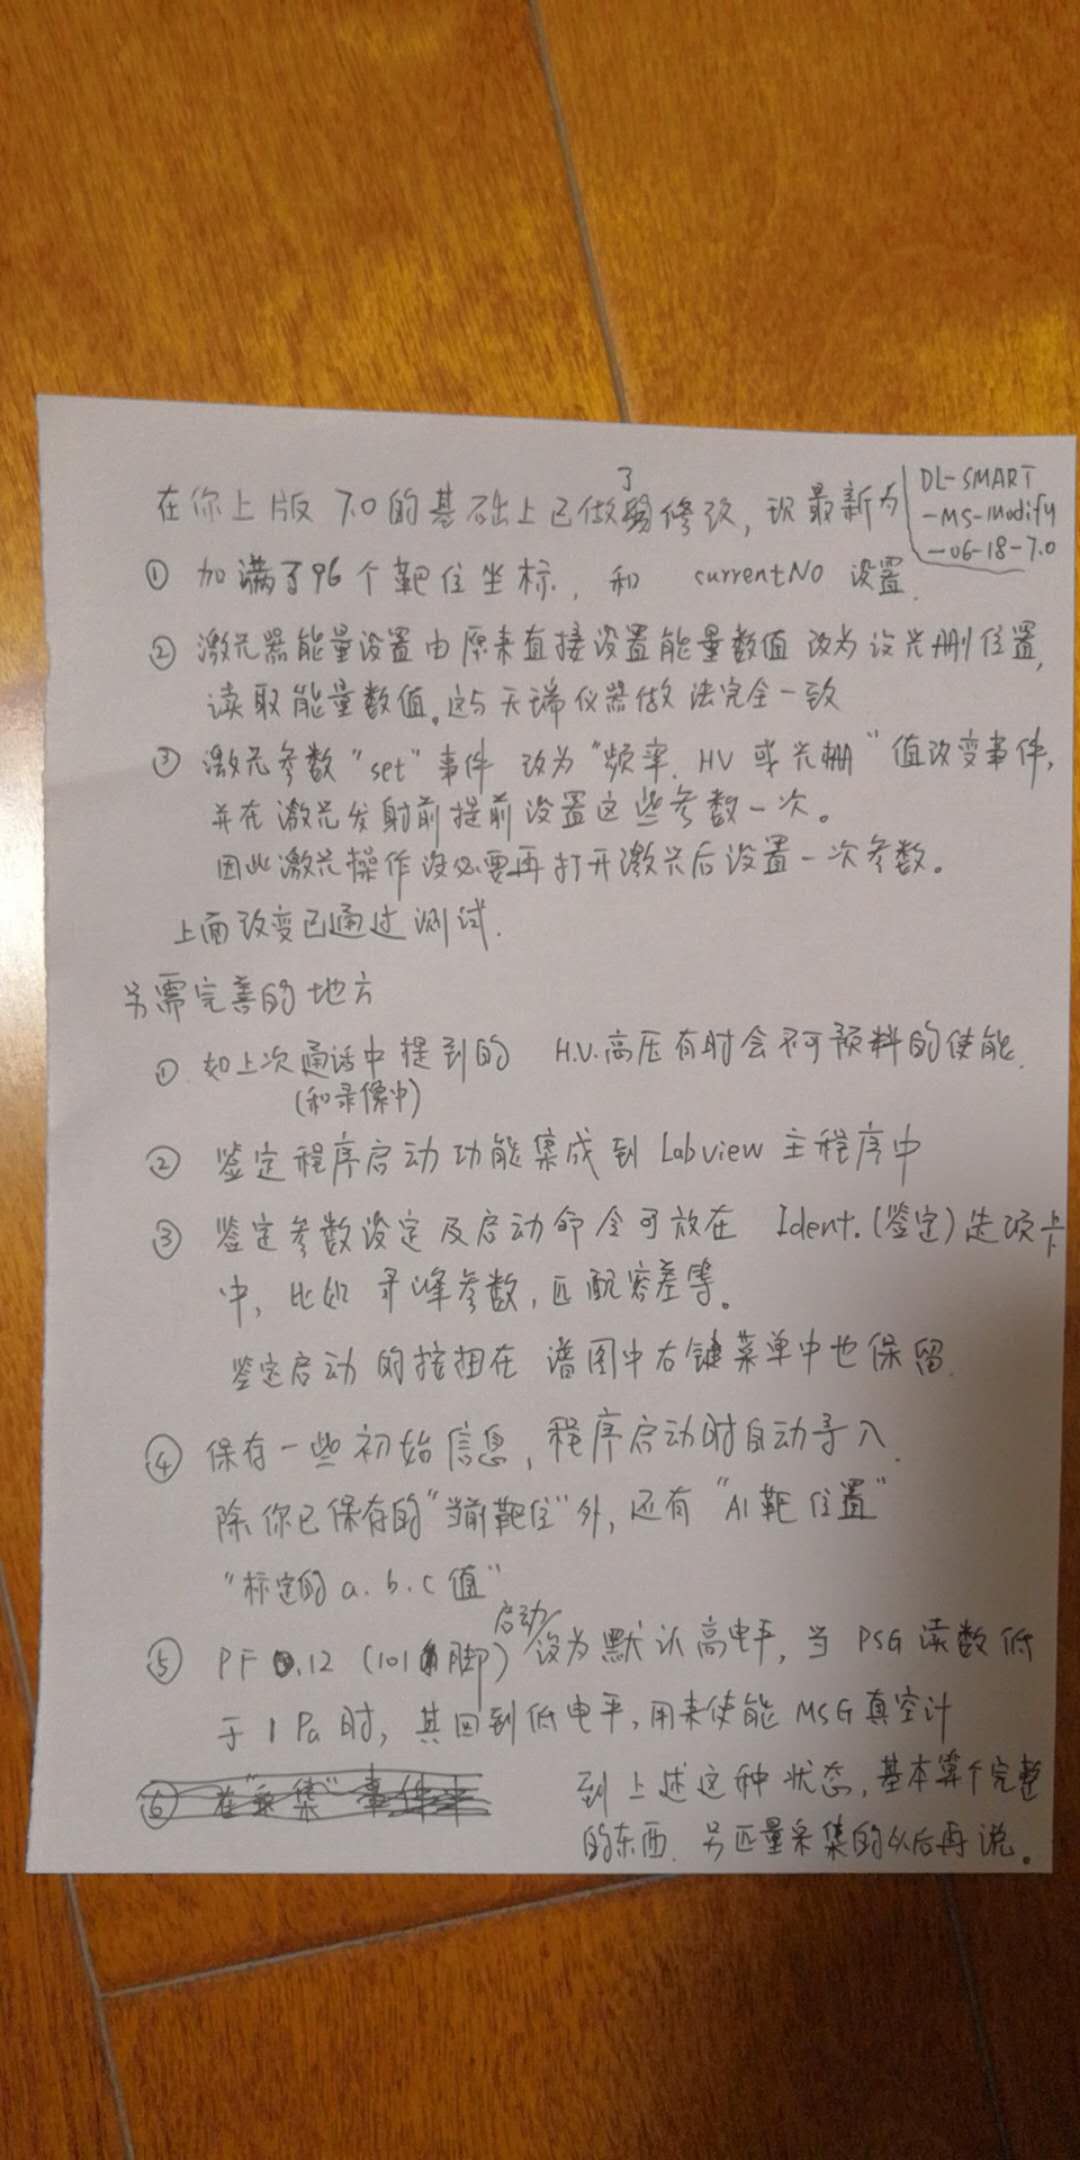 在你上版 7.0的基础上已做了修改，现最新为 DL-SMART
-MS-Modify
-06-18-7.0
① 加满了96个靶位坐标，和 currentNo 设置.
② 激光器能量设置由原来直接设置能量数值 改为设光删位置，
读取能量数值。这与天瑞仪器做法完全一致
③ 激光参数"set"事件 改为"频率、HV 或光栅"值改变事件，
并在激光发射前提前设置这些参数一次。
因此激光操作没必要再打开激光后设置一次参数。
上面改变已通过测试.
另需完善的地方
①. 如上次通话中提到的 H.V.高压有时会不可预料的使能.
(和录像中)
② 鉴定程序启动功能集成到 Labview 主程序中
③ 鉴定参数设定及启动命令可放在 Ident.(鉴定)选项卡
中，比如 寻峰参数，匹配容差等。
鉴定启动的按扭在 谱图中右键菜单中也保留.
④ 保存一些初始信息，程序启动时自动导入.
除你已保存的"当前靶位"外，还有 "A1靶位置"
"标定的 a.b.c 值"
⑤ PF0.12 (101脚) 启动设为默认高电平，当 PSG 读数低
于 1 Pa时，其回到低电平，用来使能 MSG 真空计
⑥ 在"采集"事件中
到上述这种状态，基本算个完整
的东西. 另匹量采集的以后再说。